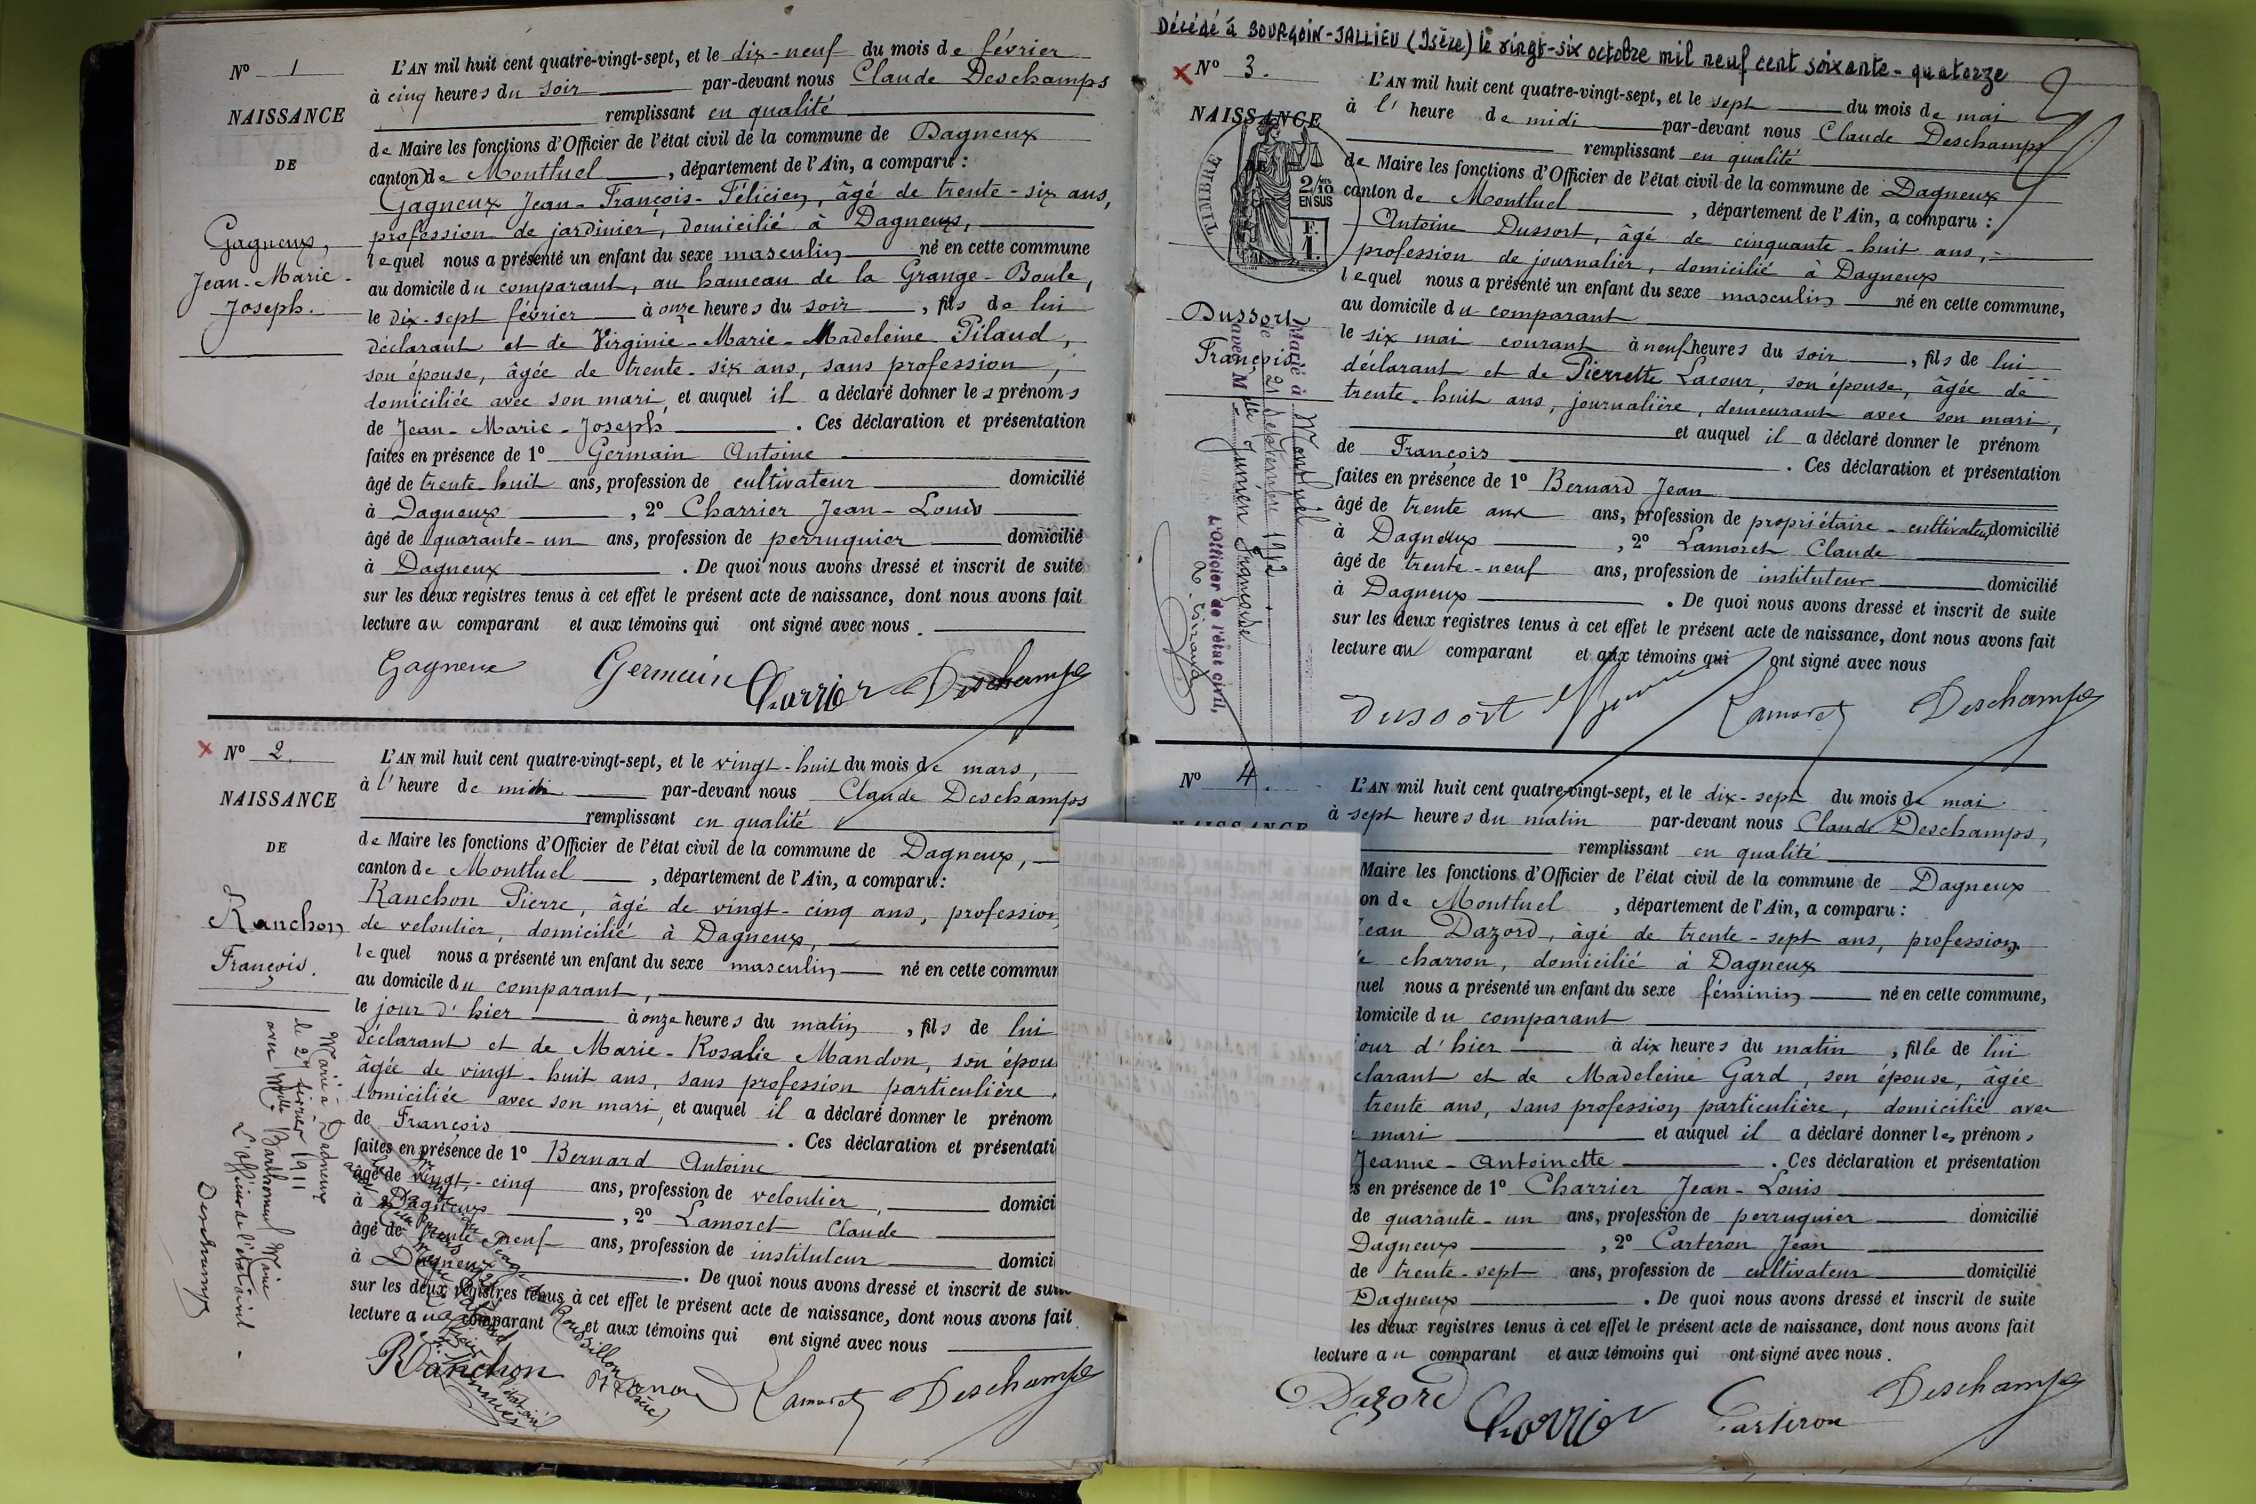 N° 1
NAISSANCE
DE
Gagneux,
Jean-Marie-
Joseph.
L'AN mil huit cent quatre-vingt-sept, et le dix-neuf du mois de février
à cinq heures du soir par-devant nous Claude Deschamps
remplissant en qualité
de Maire les fonctions d'Officier de l'état civil de la commune de Dagneux
canton de Montluel, département de l'Ain, a comparu :
Gagneux Jean-François-Félicien, âgé de trente-six ans,
profession de jardinier, domicilié à Dagneux,
lequel nous a présenté un enfant du sexe masculin né en cette commune
au domicile du comparant, au hameau de la Grange-Boule,
le dix-sept février à onze heures du soir, fils de lui
déclarant et de Virginie-Marie-Madeleine Pilaud,
son épouse, âgée de trente-six ans, sans profession,
domiciliée avec son mari, et auquel il a déclaré donner les prénoms
de Jean-Marie-Joseph. Ces déclaration et présentation
faites en présence de 1° Germain Antoine
âgé de trente-huit ans, profession de cultivateur domicilié
à Dagneux, 2° Charrier Jean-Louis
âgé de quarante-un ans, profession de perruquier domicilié
à Dagneux. De quoi nous avons dressé et inscrit de suite
sur les deux registres tenus à cet effet le présent acte de naissance, dont nous avons fait
lecture au comparant et aux témoins qui ont signé avec nous.
Gagneux Germain Charrier Deschamps
x N° 2.
NAISSANCE
DE
Ranchon
François.
Marié à Dagneux
le 29 février 1911
avec Mlle Barthomeuf Marie
L'officier de l'état civil
Deschamps
L'AN mil huit cent quatre-vingt-sept, et le vingt-huit du mois de mars,
à l'heure de midi par-devant nous Claude Deschamps
remplissant en qualité
de Maire les fonctions d'Officier de l'état civil de la commune de Dagneux,
canton de Montluel, département de l'Ain, a comparu :
Ranchon Pierre, âgé de vingt-cinq ans, profession
de veloutier, domicilié à Dagneux,
lequel nous a présenté un enfant du sexe masculin né en cette commun
au domicile du comparant,
le jour d'hier à onze heures du matin, fils de lui
déclarant et de Marie-Rosalie Mandon, son épou
âgée de vingt-huit ans, sans profession particulière,
domiciliée avec son mari, et auquel il a déclaré donner le prénom
de François. Ces déclaration et présentati
faites en présence de 1° Bernard Antoine
âgé de vingt-cinq ans, profession de veloutier, domici
à Dagneux, 2° Lamoret Claude
âgé de trente neuf ans, profession de instituteur domici
à Dagneux. De quoi nous avons dressé et inscrit de suite
sur les deux registres tenus à cet effet le présent acte de naissance, dont nous avons fait
lecture au comparant et aux témoins qui ont signé avec nous
Roussillon
(Isère)
Ranchon Lamoret Deschamps
Décédé à BOURGOIN-JALLIEU (Isère) le vingt-six octobre mil neuf cent soixante-quatorze
x N° 3.
NAISSANCE
DE
TIMBRE
2/10
EN SUS
F.
1.
Dussort
François
Marié à Montluel
le 21 septembre 1912
avec Mlle Junien Françoise
L'Officier de l'état civil,
L'AN mil huit cent quatre-vingt-sept, et le sept du mois de mai
à l'heure de midi par-devant nous Claude Deschamps
remplissant en qualité
de Maire les fonctions d'Officier de l'état civil de la commune de Dagneux
canton de Montluel, département de l'Ain, a comparu :
Antoine Dussort, âgé de cinquante-huit ans,
profession de journalier, domicilié à Dagneux
lequel nous a présenté un enfant du sexe masculin né en cette commune,
au domicile du comparant
le six mai courant à neuf heures du soir, fils de lui
déclarant et de Pierrette Lacour, son épouse, âgée de
trente-huit ans, journalière, demeurant avec son mari,
et auquel il a déclaré donner le prénom
de François. Ces déclaration et présentation
faites en présence de 1° Bernard Jean
âgé de trente ans ans, profession de propriétaire-cultivateur domicilié
à Dagneux, 2° Lamoret Claude
âgé de trente-neuf ans, profession de instituteur domicilié
à Dagneux. De quoi nous avons dressé et inscrit de suite
sur les deux registres tenus à cet effet le présent acte de naissance, dont nous avons fait
lecture au comparant et aux témoins qui ont signé avec nous
Dussort Lamoret Deschamps
N° 4.
NAISSANCE
L'AN mil huit cent quatre-vingt-sept, et le dix-sept du mois de mai
à sept heures du matin par-devant nous Claude Deschamps,
remplissant en qualité
Maire les fonctions d'Officier de l'état civil de la commune de Dagneux
on de Montluel, département de l'Ain, a comparu :
Jean Dazord, âgé de trente-sept ans, profession
de charron, domicilié à Dagneux
quel nous a présenté un enfant du sexe féminin né en cette commune,
domicile du comparant
jour d'hier à dix heures du matin, fille de lui
clarant et de Madeleine Gard, son épouse, âgée
trente ans, sans profession particulière, domicilié avec
mari et auquel il a déclaré donner les prénoms
Jeanne-Antoinette. Ces déclaration et présentation
s en présence de 1° Charrier Jean-Louis
de quarante-un ans, profession de perruquier domicilié
Dagneux, 2° Carteron Jean
de trente-sept ans, profession de cultivateur domicilié
Dagneux. De quoi nous avons dressé et inscrit de suite
les deux registres tenus à cet effet le présent acte de naissance, dont nous avons fait
lecture au comparant et aux témoins qui ont signé avec nous.
Dazord Charrier Carteron Deschamps